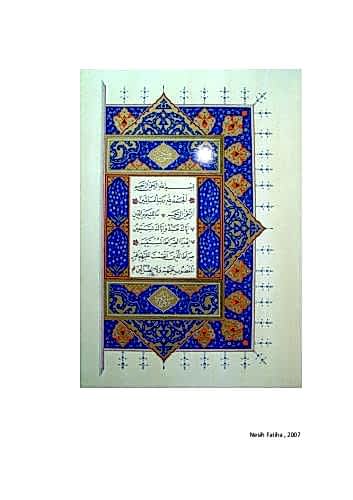 بسم الله الرحمن الرحيم
الحمد لله رب العالمين
الرحمن الرحيم مالك يوم الدين
إياك نعبد وإياك نستعين
اهدنا الصراط المستقيم
صراط الذين أنعمت عليهم غير
المغضوب عليهم ولا الضالين
Nesih Fatiha , 2007